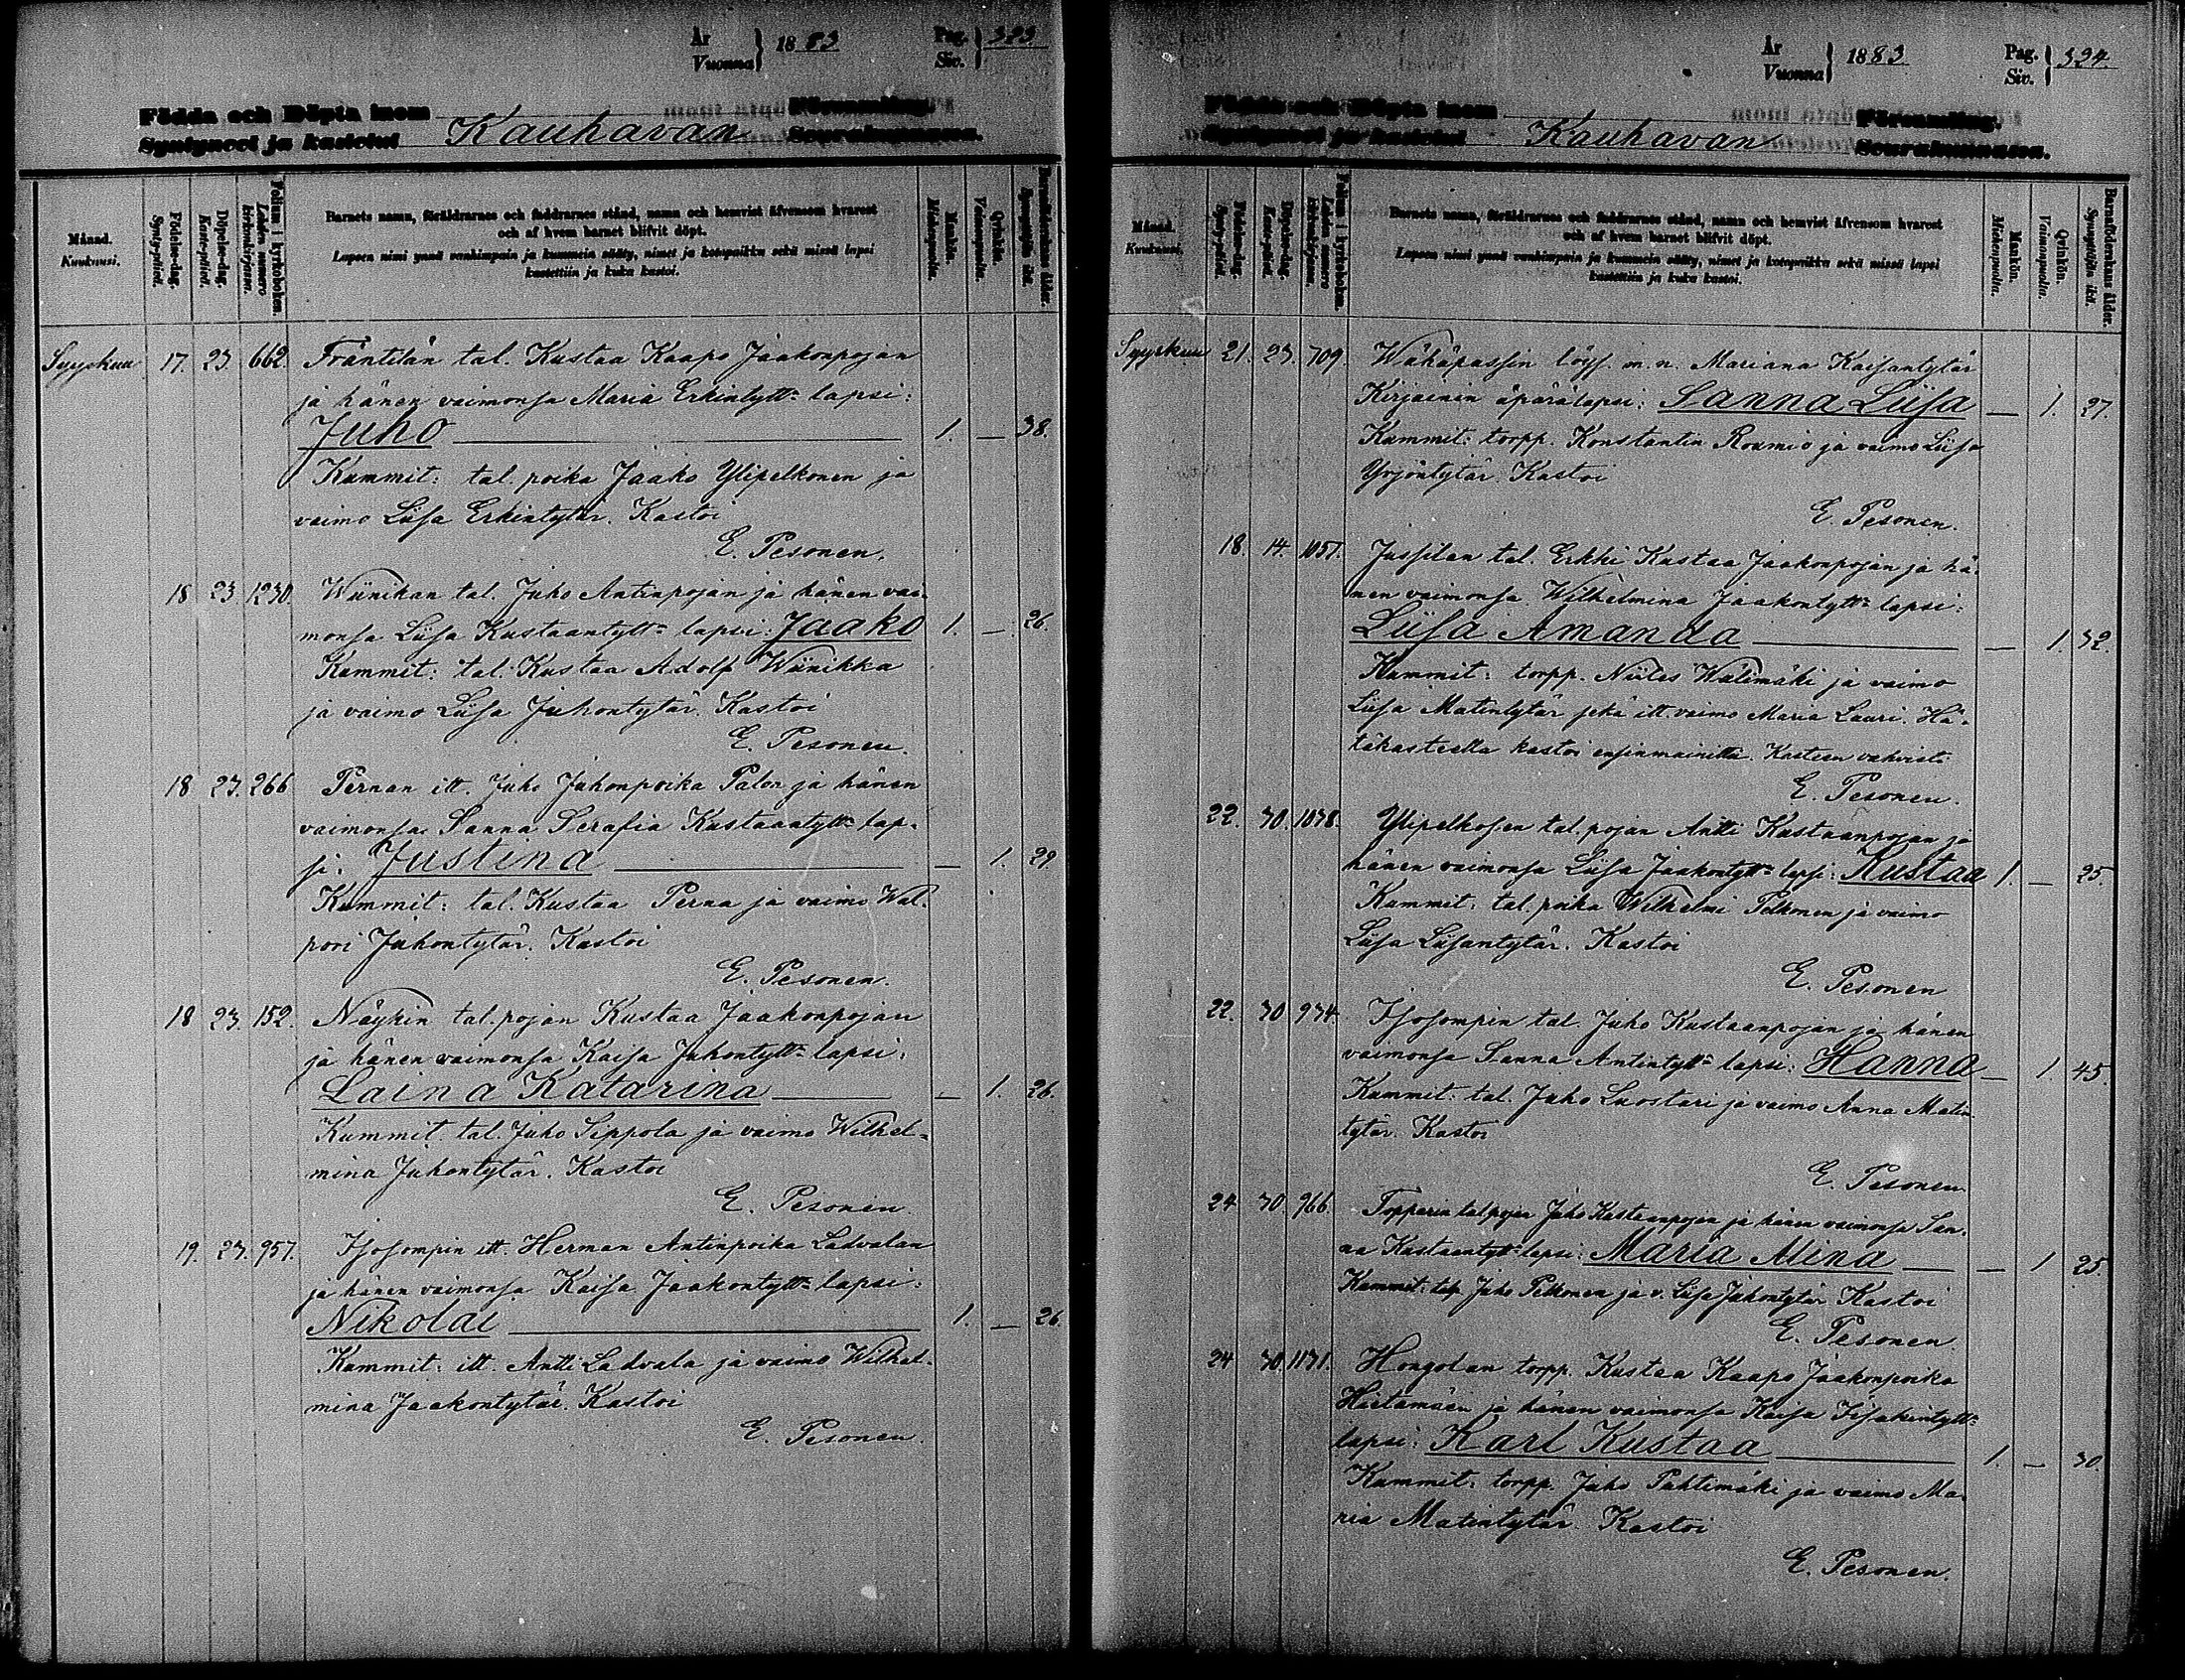 År
Vuonna } 1883
Pag.
Siv. } 323.
Födda och Döpta inom
Syntyneet ja kastetut
Kauhavan
Församling.
Seurakunnassa.
Månad.
Kuukausi.
Födelse-dag.
Syntypäivä.
Döpelse-dag.
Kaste-päivä.
Folium i kyrkoboken.
Lehden numero kirkonkirjassa.
Barnets namn, föräldrarnes och faddrarnes stånd, namn och hemvist äfvensom hvarest
och af hvem barnet blifvit döpt.
Lapsen nimi ynnä vanhimpain ja kummein sääty, nimet ja kotopaikka sekä missä lapsi
kastettiin ja kuka kastoi.
Mankön.
Miehenpuolta.
Qvinkön.
Vaimonpuolta.
Barnaföderskans ålder.
Synnyttäjän ikä.
Syyskuu 17. 23. 662. Fräntilän tal. Kustaa Kaapo Jaakonpojan
ja hänen vaimonsa Maria Erkintytt= lapsi:
Juho 1. — 38.
Kummit: tal. poika Jaako Ylipelkonen ja
vaimo Liisa Erkintytär. Kastoi
E. Pesonen.
18 23 1230. Wiinikan tal. Juho Antinpojan ja hänen vai-
monsa Liisa Kustaantytt= lapsi: Jaako 1. — 26.
Kummit: tal. Kustaa Adolf Wiinikka
ja vaimo Liisa Juhontytär. Kastoi
E. Pesonen.
18 23. 266 Pernan itt. Juho Juhonpoika Palon ja hänen
vaimonsa Sanna Serafia Kustaantytt= lap-
si: Justina — 1. 29.
Kummit: tal. Kustaa Perna ja vaimo Wal-
pori Juhontytär. Kastoi
E. Pesonen.
18 23. 152. Näykin tal. pojan Kustaa Jaakonpojan
ja hänen vaimonsa Kaisa Juhontytt= lapsi:
Laina Katarina — 1. 26.
Kummit: tal. Juho Sippola ja vaimo Wilhel-
mina Juhontytär. Kastoi
E. Pesonen.
19. 23. 957. Isosompin itt. Herman Antinpoika Ladvalan
ja hänen vaimonsa Kaisa Jaakontytt= lapsi:
Nikolai 1. — 26.
Kummit: itt. Antti Ladvala ja vaimo Wilhel-
mina Jaakontytär. Kastoi
E. Pesonen.
År
Vuonna } 1883
Pag.
Siv. } 324.
Födda och Döpta inom
Syntyneet ja kastetut
Kauhavan
Församling.
Seurakunnassa.
Månad.
Kuukausi.
Födelse-dag.
Synty-päivä.
Döpelse-dag.
Kaste-päivä.
Folium i kyrkoboken.
Lehden numero kirkonkirjassa.
Barnets namn, föräldrarnes och faddrarnes stånd, namn och hemvist äfvensom hvarest
och af hvem barnet blifvit döpt.
Lapsen nimi ynnä vanhimpain ja kummein sääty, nimet ja kotopaikka sekä missä lapsi
kastettiin ja kuka kastoi.
Mankön.
Miehenpuolta.
Qvinkön.
Vaimonpuolta.
Barnaföderskans ålder.
Synnyttäjän ikä.
Syyskuu 21. 23. 709. Wähäpassin löys. m. n. Mariana Kaisantytär
Kirjainin äpärälapsi: Sanna Liisa — 1. 27.
Kummit: torpp. Konstantin Roumio ja vaimo Liisa
Yrjöntytär. Kastoi
E. Pesonen.
18. 14. 1057. Jussilan tal. Erkki Kustaa Jaakonpojan ja hä-
nen vaimonsa Wilhelmina Jaakontytt= lapsi:
Liisa Amanda — 1. 32.
Kummit: torpp. Niiles Wälimäki ja vaimo
Liisa Matintytär sekä itt. vaimo Maria Lauri. Hä-
täkasteella kastoi ensinmainittu. Kasteen vahvisti
E. Pesonen.
22. 30. 1038. Ylipelkosen tal. pojan Antti Kustaanpojan ja
hänen vaimonsa Liisa Jaakontytt= lapsi: Kustaa 1. — 25.
Kummit: tal. poika Wilhelmi Pelkonen ja vaimo
Liisa Liisantytär. Kastoi
E. Pesonen
22. 30 934. Isosompin tal. Juho Kustaanpojan ja hänen
vaimonsa Sanna Antintytt= lapsi: Hanna — 1. 45.
Kummit: tal. Juho Luostari ja vaimo Anna Matin-
tytär. Kastoi
E. Pesonen
24 30. 966. Topparin tal. pojan Juho Kustaanpojan ja hänen vaimonsa San-
na Kustaantytt= lapsi: Maria Miina — 1 25.
Kummit: tal. Juho Pelkonen ja v. Liisa Juhontytär Kastoi
E. Pesonen.
24 30. 1131. Hongolan torpp. Kustaa Kaapo Jaakonpoika
Hietamäen ja hänen vaimonsa Kaisa Iisakintytt=
lapsi: Karl Kustaa 1. — 30.
Kummit: torpp. Juho Pahtimäki ja vaimo Ma-
ria Matintytär. Kastoi
E. Pesonen.